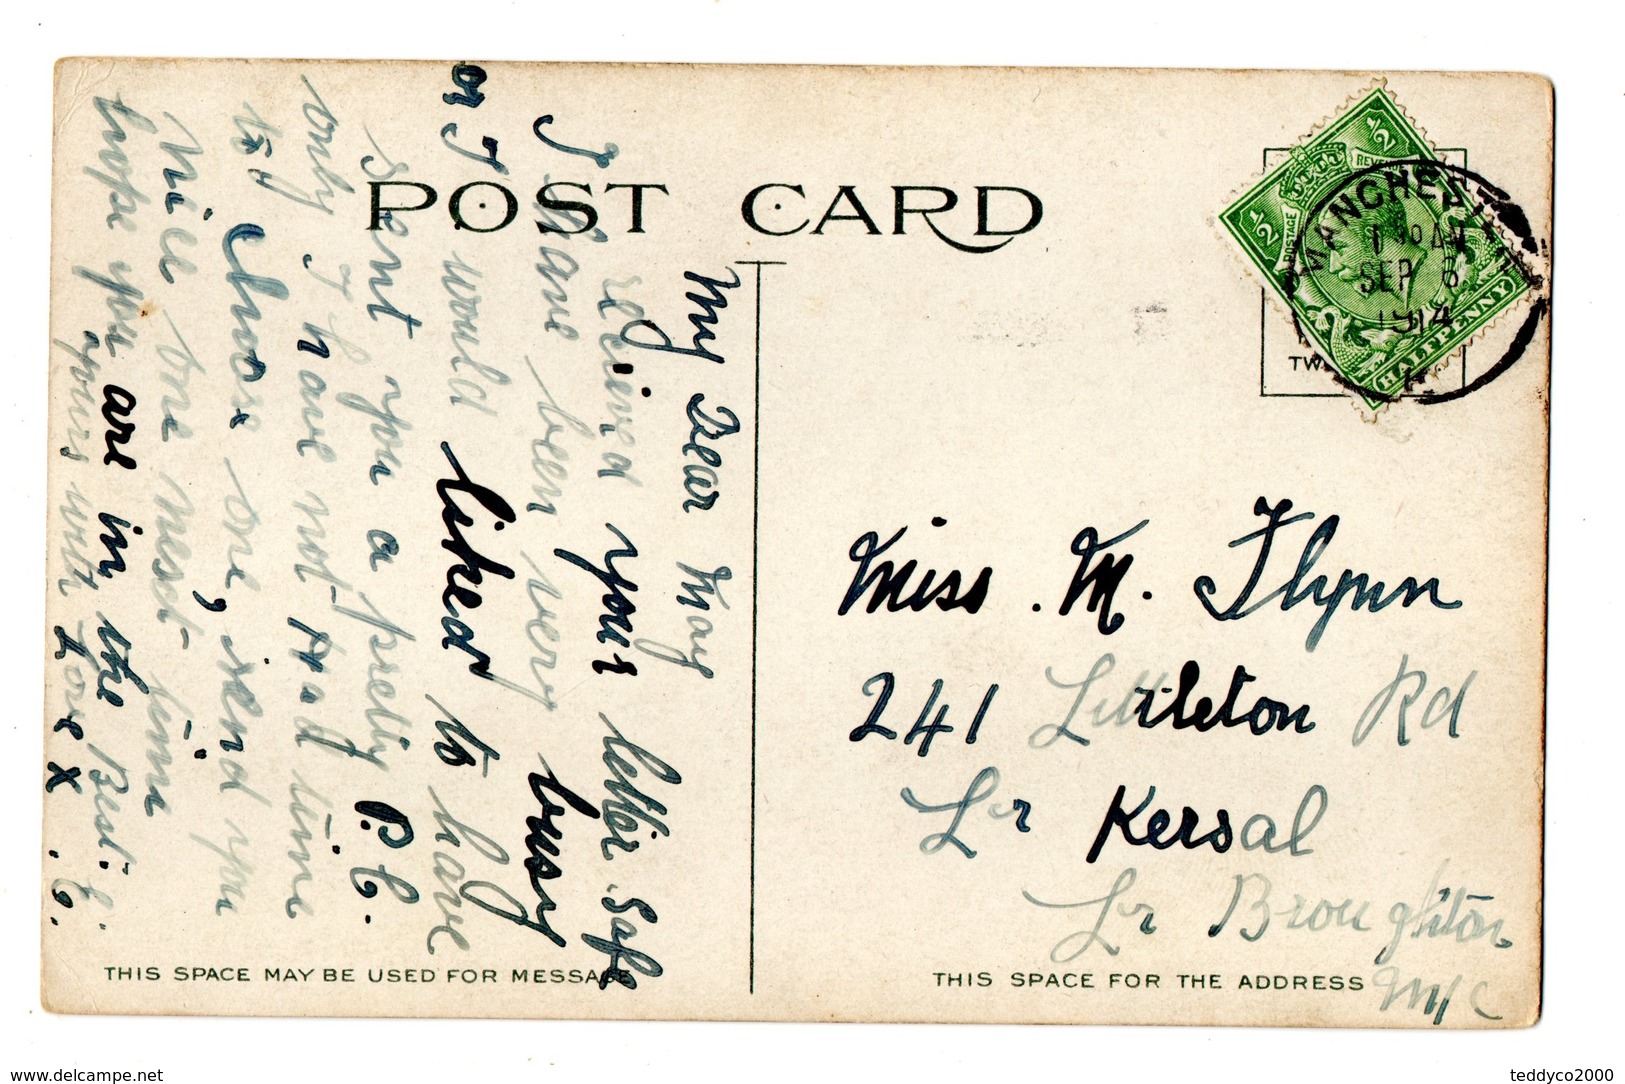 POST CARD
½
½
POSTAGE
REVENUE
HALFPENNY
MANCHESTER
SEP 8
1914
TW
My Dear May
I recieved your letter Safe
I have been very busy
or I would liked to have
sent you a pretty P.C.
only I have not Had time
to choose one, send you
nice one next time
hope you are in the Best
yours with Love x
Miss. M. Flynn
241 Littleton Rd
Lr Kersal
Lr Broughton
M/C
THIS SPACE MAY BE USED FOR MESSAGE
THIS SPACE FOR THE ADDRESS
delcampe.net
teddyco2000